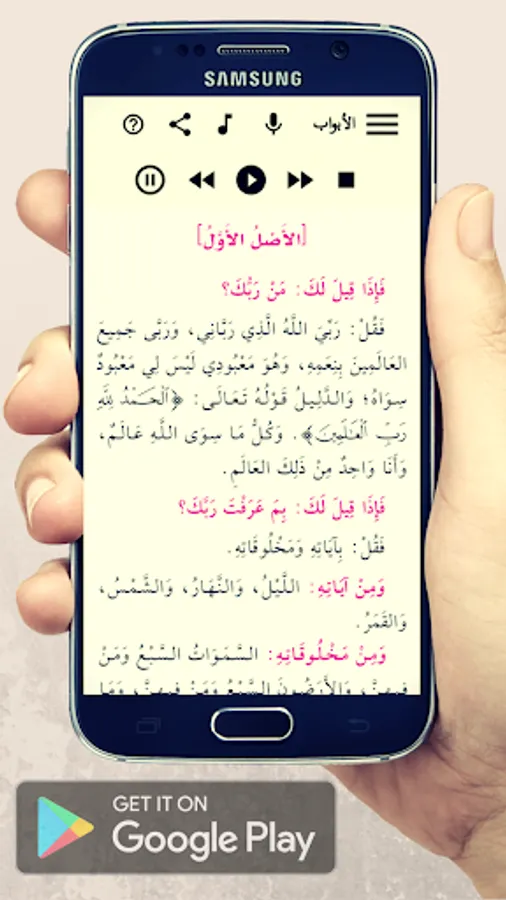 SAMSUNG
الأبواب
[الأَصْلُ الأَوَّلُ]
فَإِذَا قِيلَ لَكَ: مَنْ رَبُّكَ؟
فَقُلْ: رَبِّيَ اللَّهُ الَّذِي رَبَّانِي، وَرَبَّى جَمِيعَ
العَالَمِينَ بِنِعَمِهِ، وَهُوَ مَعْبُودِي لَيْسَ لِي مَعْبُودٌ
سِوَاهُ؛ وَالدَّلِيلُ قَوْلُهُ تَعَالَى: ﴿ٱلۡحَمۡدُ لِلَّهِ
رَبِّ ٱلۡعَٰلَمِينَ﴾. وَكُلُّ مَا سِوَى اللَّهِ عَالَمٌ،
وَأَنَا وَاحِدٌ مِنْ ذَلِكَ العَالَمِ.
فَإِذَا قِيلَ لَكَ: بِمَ عَرَفْتَ رَبَّكَ؟
فَقُلْ: بِآيَاتِهِ وَمَخْلُوقَاتِهِ.
وَمِنْ آيَاتِهِ: اللَّيْلُ، وَالنَّهَارُ، وَالشَّمْسُ،
وَالقَمَرُ.
وَمِنْ مَخْلُوقَاتِهِ: السَّمَوَاتُ السَّبْعُ وَمَنْ
فِيهِنَّ، وَالأَرَضُونَ السَّبْعُ وَمَنْ فِيهِنَّ، وَمَا
GET IT ON
Google Play